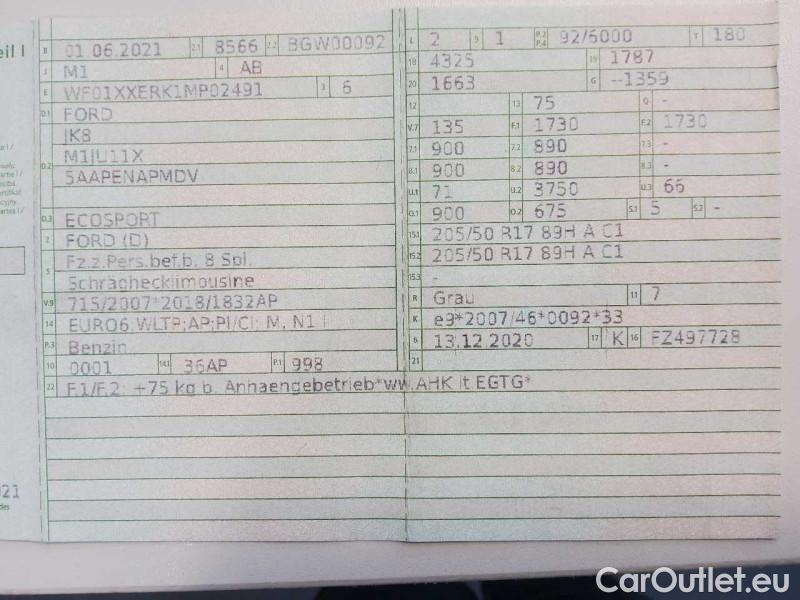 eil I
B 01 06.2021 2.1 8566 2.2 BGW00092
J M1 4 AB
E WF01XXERK1MP02491 3 6
D.1 FORD
D.2 JK8
M1JU11X
5AAPENAPMDV
D.3 ECOSPORT
2 FORD (D)
5 Fz.z.Pers.bef.b. 8 Spl.
Schrägheckllimousine
V.9 715/2007*2018/1832AP
14 EURO6;WLTP;AP;PI/CI; M, N1 I
P.3 Benzin
10 0001 14.1 36AP P.1 998
22 F.1/F.2: +75 kg b. Anhaengebetrieb*ww.AHK lt EGTG*
L 2 9 1 P.2 P.4 92/6000 T 180
18 4325 19 1787
20 1663 G --1359
12 13 75 Q -
V.7 135 F.1 1730 F.2 1730
7.1 900 7.2 890 7.3 -
8.1 900 8.2 890 8.3 -
U.1 71 U.2 3750 U.3 66
O.1 900 O.2 675 S.1 5 S.2 -
15.1 205/50 R17 89H A C1
15.2 205/50 R17 89H A C1
15.3 -
R Grau 11 7
K e9*2007/46*0092*33
6 13.12.2020 17 K 16 FZ497728
21
021
CarOutlet.eu